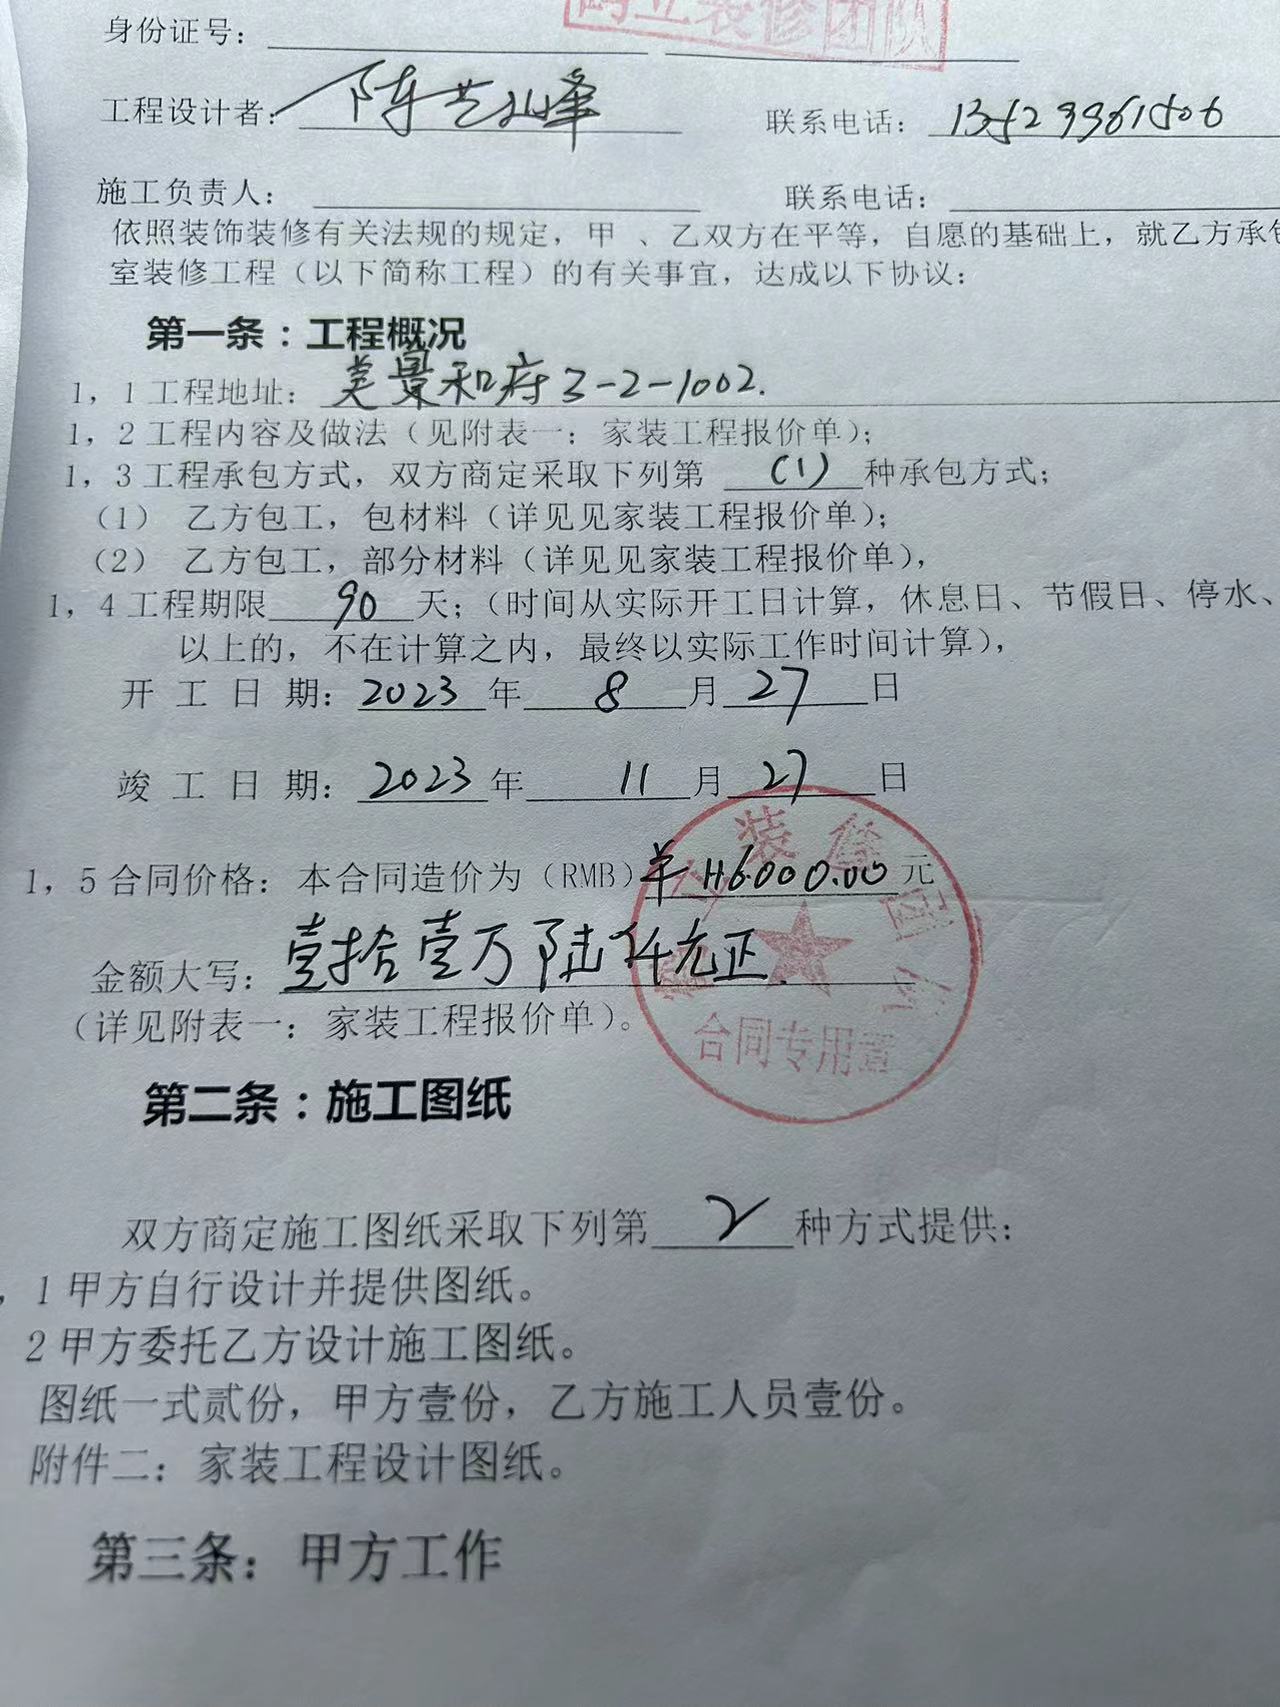 鹤立装修团队
身份证号：
工程设计者： 陈艺峰 联系电话： 13529961506
施工负责人： 联系电话：
依照装饰装修有关法规的规定，甲 、乙双方在平等，自愿的基础上，就乙方承包
室装修工程（以下简称工程）的有关事宜，达成以下协议：
第一条：工程概况
1，1工程地址： 美景和府3-2-1002.
1，2工程内容及做法（见附表一：家装工程报价单）；
1，3工程承包方式，双方商定采取下列第 （1） 种承包方式；
（1） 乙方包工，包材料（详见见家装工程报价单）；
（2） 乙方包工，部分材料（详见见家装工程报价单），
1，4工程期限 90 天；（时间从实际开工日计算，休息日、节假日、停水、
以上的，不在计算之内，最终以实际工作时间计算），
开 工 日 期： 2023 年 8 月 27 日
竣 工 日 期： 2023 年 11 月 27 日
1，5合同价格：本合同造价为（RMB）¥ 116000.00 元
金额大写： 壹拾壹万陆仟元正
（详见附表一：家装工程报价单）。
合同专用章
第二条：施工图纸
双方商定施工图纸采取下列第 2 种方式提供：
，1甲方自行设计并提供图纸。
2甲方委托乙方设计施工图纸。
图纸一式贰份，甲方壹份，乙方施工人员壹份。
附件二：家装工程设计图纸。
第三条：甲方工作